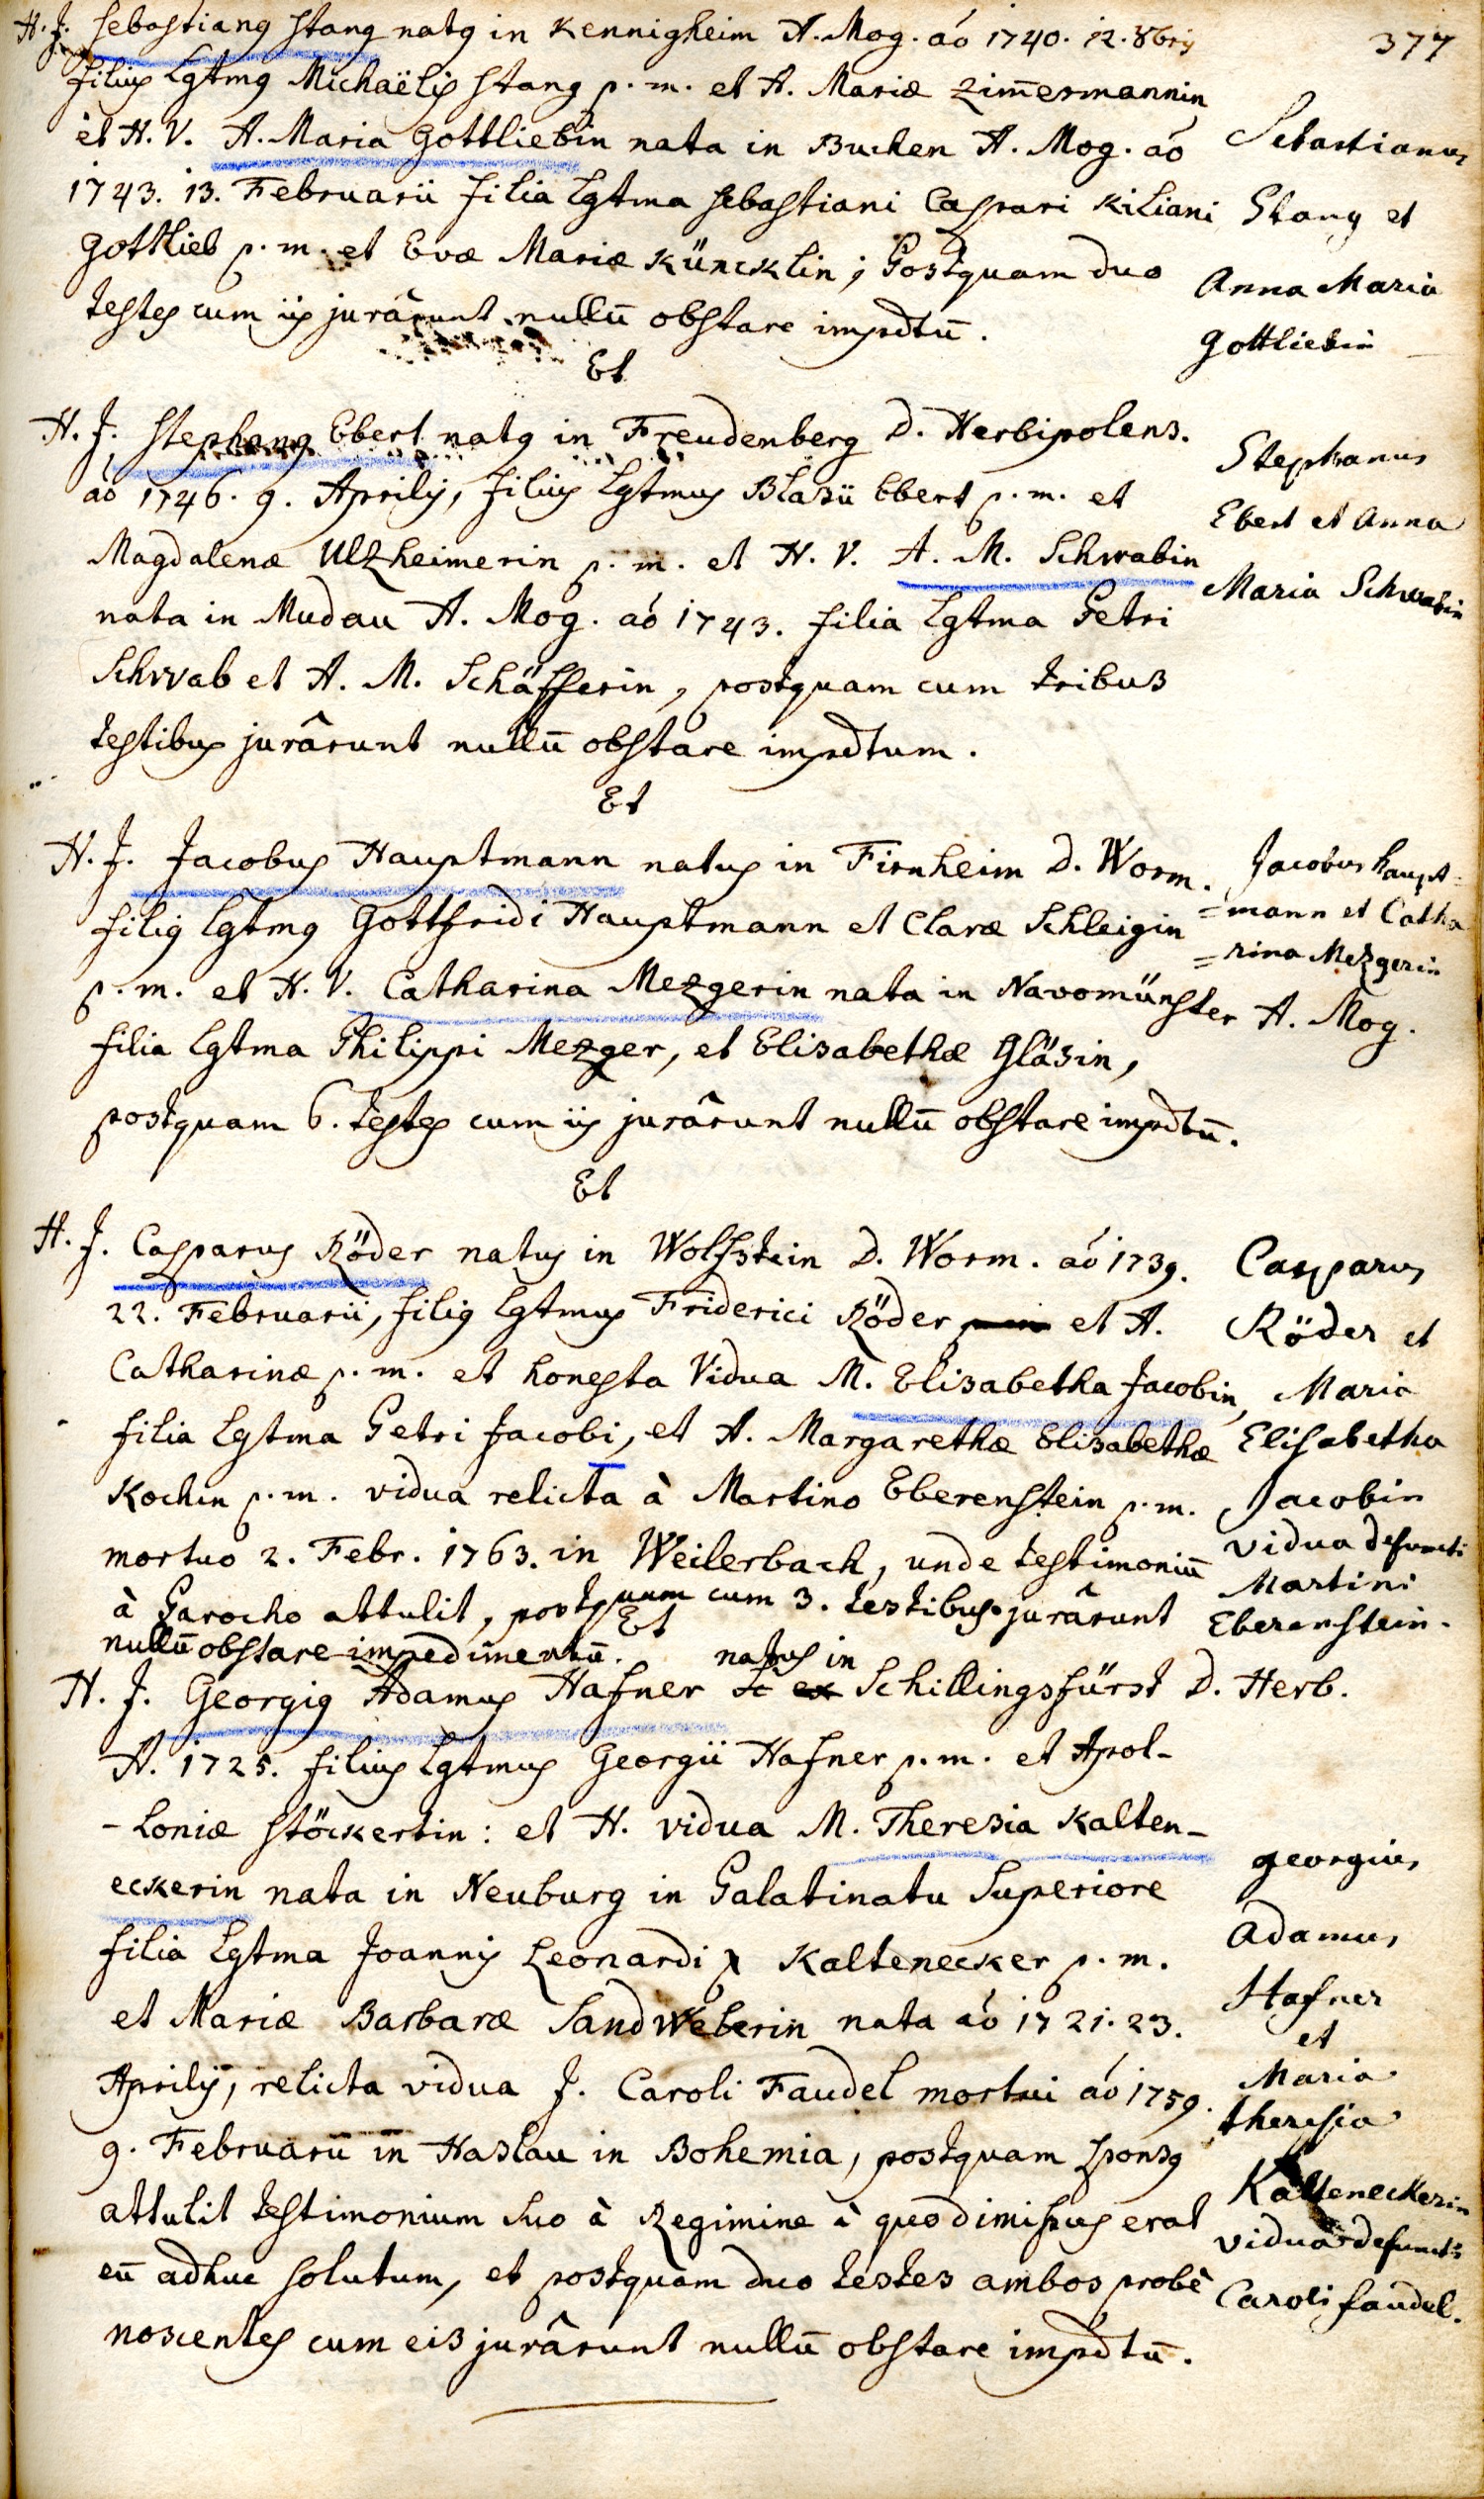 377
H. J. Sebastianus Stang natus in Kennigheim A. Mog. aó 1740. 12. 8bris
filius Lgtmus Michaëlis Stang p. m. et A. Mariæ Zim̄ermannin
et H. V. A. Maria Gottliebin nata in Buchen A. Mog. aó
1743. 13. Februarii filia Lgtma Sebastiani Caspari Kiliani
Gottlieb p. m. et Evæ Mariæ Küncklin; Postquam duo
testes cum iis jurârunt nullū obstare impdtū.
Sebastianus
Stang et
Anna Maria
Gottliebin
Et
H. J. Stephanus Ebert natus in Freudenberg D. Herbipolens.
aó 1746. 9. Aprilis, filius Lgtmus Blasii Ebert p. m. et
Magdalenæ Ulzheimerin p. m. et H. V. A. M. Schwabin
nata in Mudau A. Mog. aó 1743. filia Lgtma Petri
Schwab et A. M. Schäfferin, postquam cum tribus
testibus jurârunt nullū obstare impdtum.
Stephanus
Ebert et Anna
Maria Schwabin
Et
H. J. Jacobus Hauptmann natus in Firnheim D. Worm.
filius Lgtmus Gottfridi Hauptmann et Claræ Schleigin
p. m. et H. V. Catharina Mezgerin nata in Navomünster A. Mog.
filia Lgtma Philippi Mezger, et Elisabethæ Gläsin,
postquam 6. testes cum iis jurârunt nullū obstare impdtū.
Jacobus Haupt=
=mann et Catha
=rina Mezgerin
Et
H. J. Casparus Röder natus in Wolfstein D. Worm. aó 1739.
22. Februarii, filius Lgtmus Friderici Röder et A.
Catharinæ p. m. et honesta Vidua M. Elisabetha Jacobin,
filia Lgtma Petri Jacobi, et A. Margarethæ Elisabethæ
Kochin p. m. vidua relicta à Martino Eberenstein p. m.
mortuo 2. Febr. 1763. in Weilerbach, unde testimoniū
à Parocho attulit, postquam cum 3. testibus jurârunt
nullū obstare impedimentū.
Casparus
Röder et
Maria
Elisabetha
Jacobin
vidua defuncti
Martini
Eberenstein.
Et
natus in
H. J. Georgius Adamus Hafner ex Schillingsfürst D. Herb.
A. 1725. filius Lgtmus Georgii Hafner p. m. et Apol-
-loniæ Stöckertin: et H. vidua M. Theresia Kalten-
eckerin nata in Neuburg in Palatinatu Superiore
filia Lgtma Joannis Leonardi Kaltenecker p. m.
et Mariæ Barbaræ Sandweberin nata aó 1721. 23.
Aprilis, relicta vidua J. Caroli Faudel mortui aó 1759.
9. Februarii in Haslau in Bohemia, postquam sponsus
attulit testimonium suo à Regimine à quo dimissus erat
eū adhuc solutum, et postquam duo testes ambos probè
noscentes cum eis jurârunt nullū obstare impdtū.
Georgius
Adamus
Hafner
et
Maria
Theresia
Kalteneckerin
vidua defuncti
Caroli faudel.